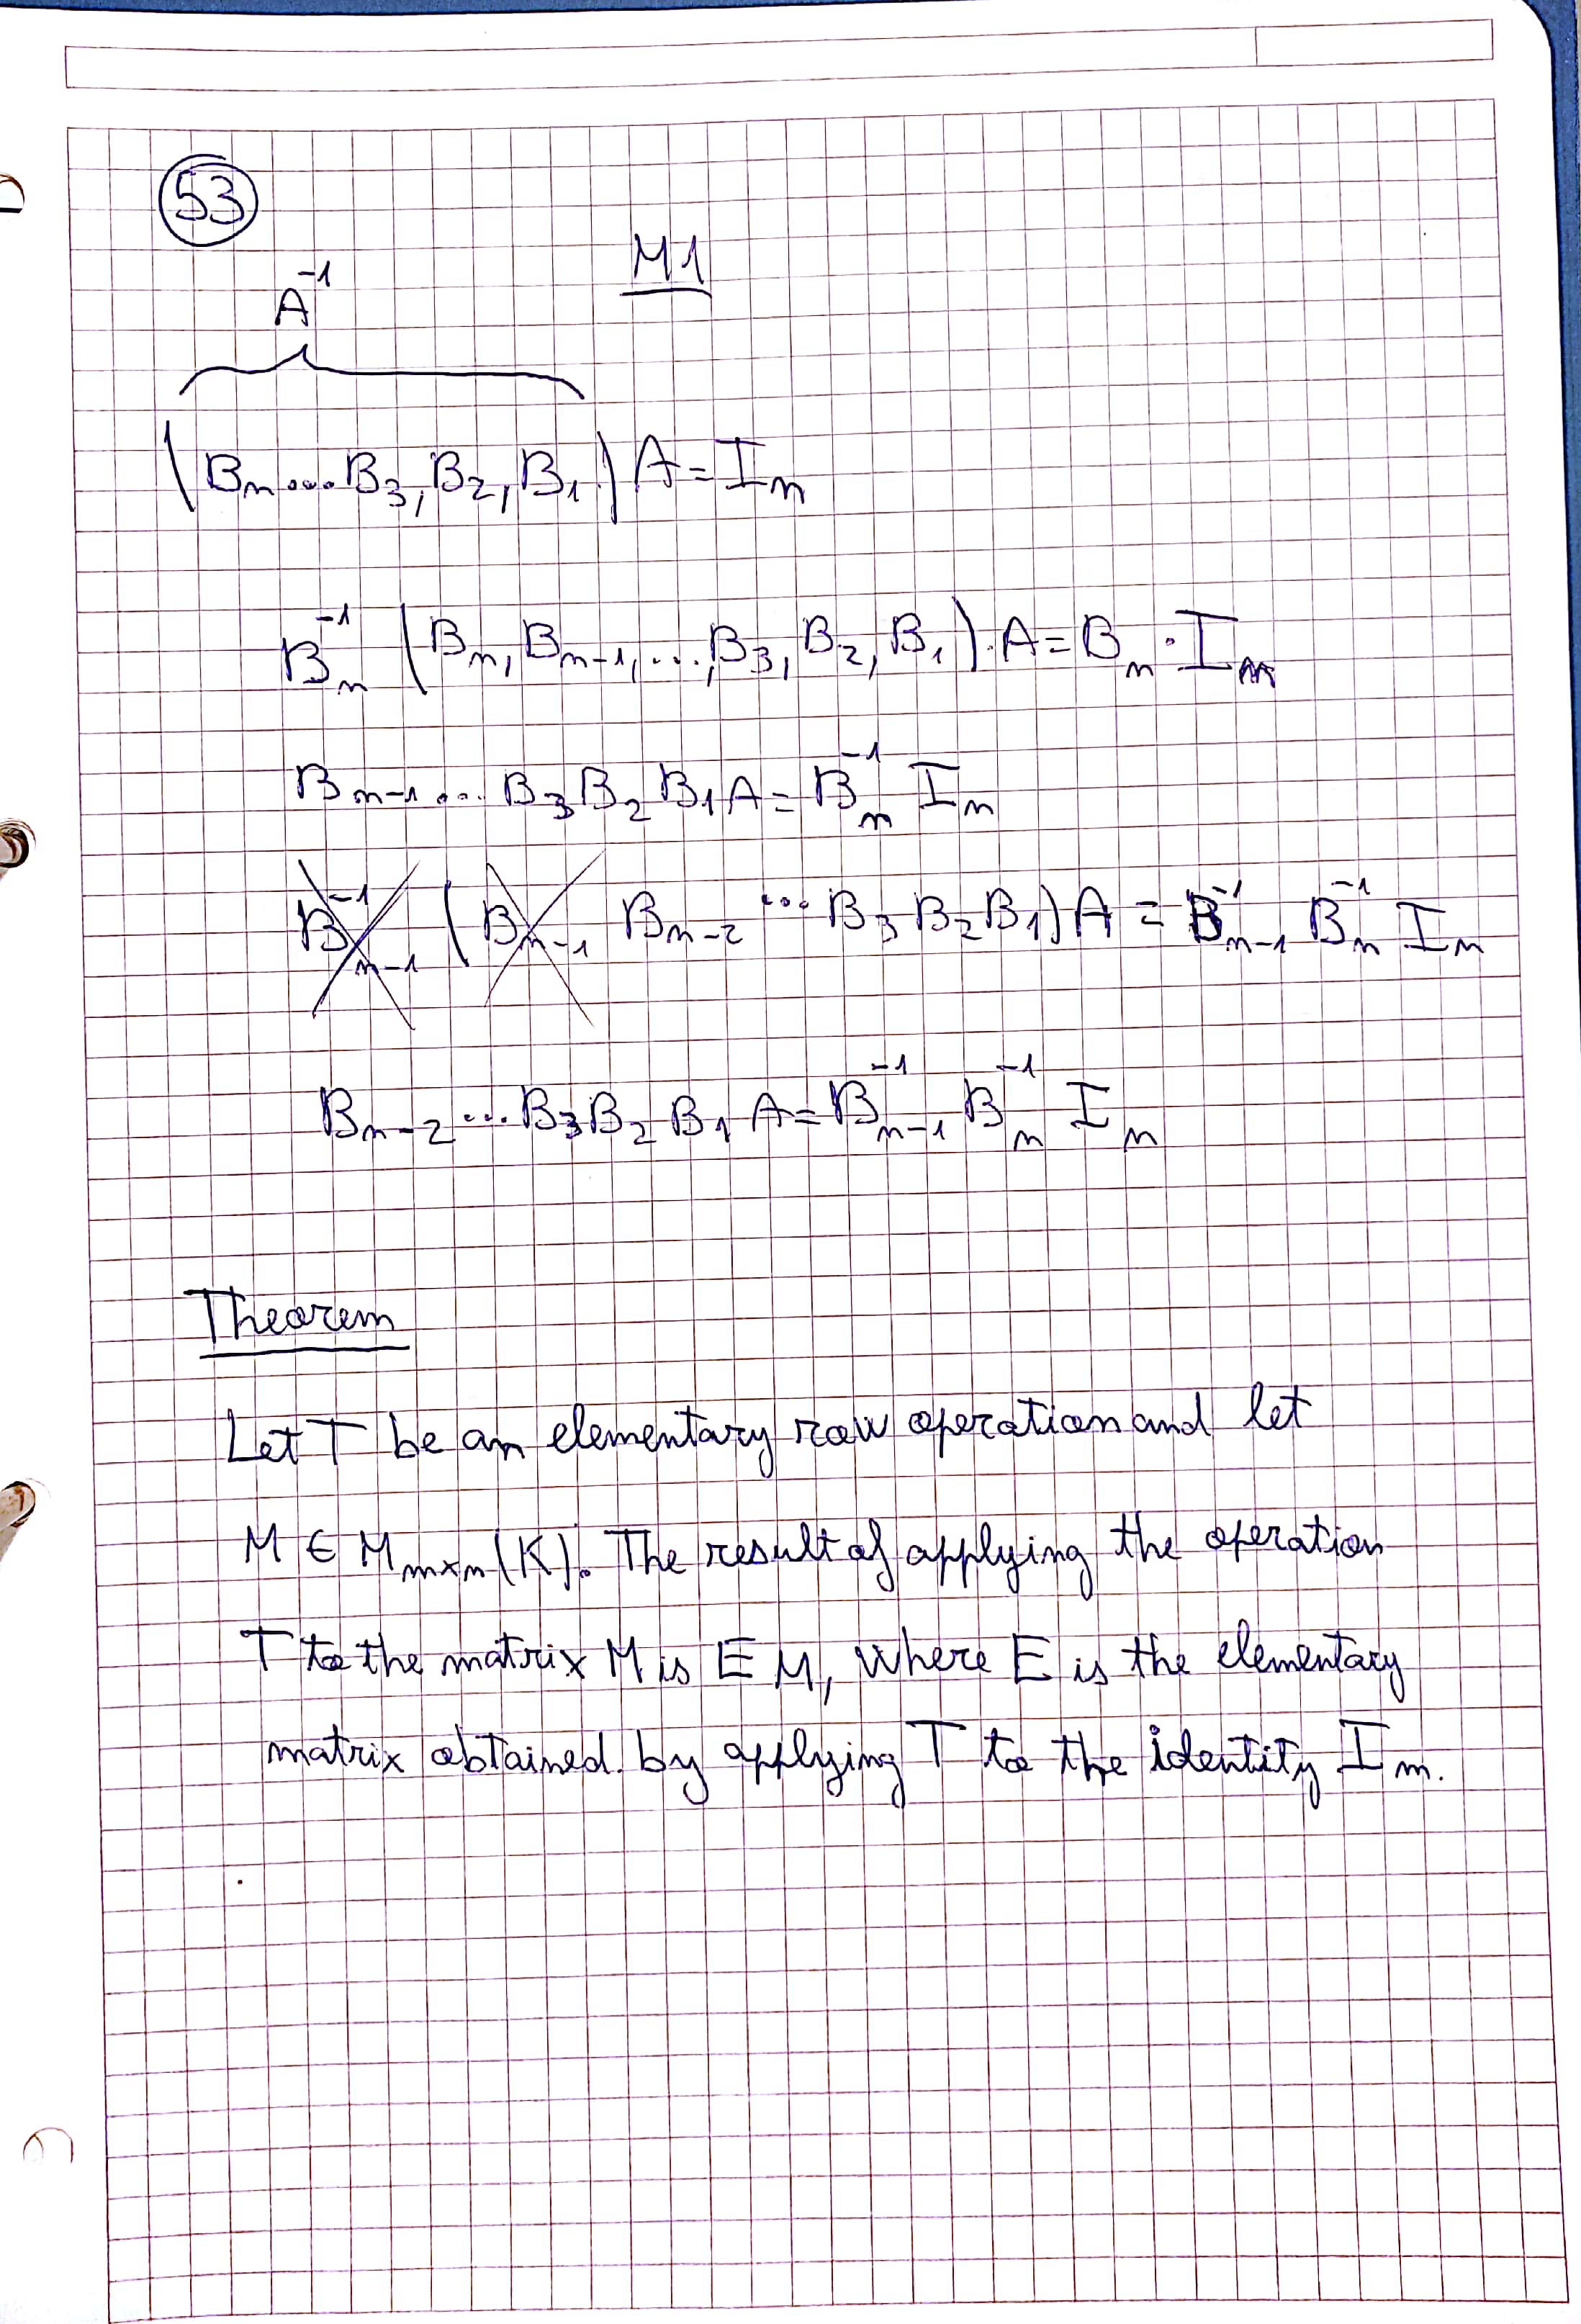 53
M1
A⁻¹
(Bₙ...B₃, B₂, B₁) A = Iₙ
Bₙ⁻¹ (Bₙ, Bₙ₋₁, ..., B₃, B₂, B₁) · A = Bₙ · Iₙ
Bₙ₋₁ ... B₃ B₂ B₁ A = Bₙ⁻¹ Iₙ
Bₙ₋₁⁻¹ (Bₙ₋₁ Bₙ₋₂ ... B₃ B₂ B₁) A = Bₙ₋₁⁻¹ Bₙ⁻¹ Iₙ
Bₙ₋₂ ... B₃ B₂ B₁ A = Bₙ₋₁⁻¹ Bₙ⁻¹ Iₙ
Theorem
Let T be an elementary row operation and let
M ∈ Mₘₓₙ(K). The result of applying the operation
T to the matrix M is E M, where E is the elementary
matrix obtained by applying T to the identity Iₘ.